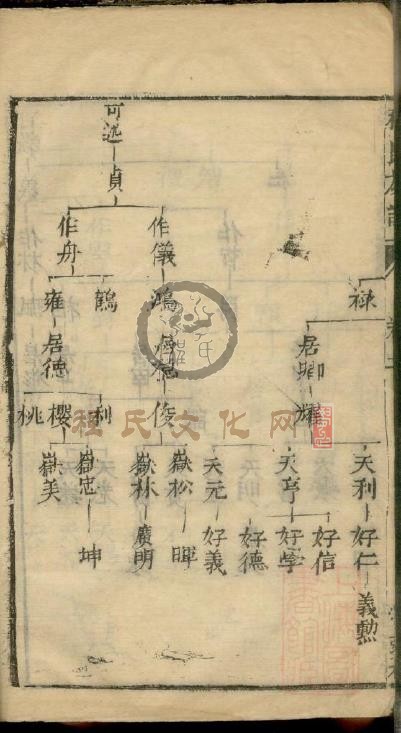 可遠
貞
作儀
作舟
祿
鴻
鶴
雍
居卿
居德
耀
俊
利
櫻
桃
天利
天亨
天元
嶽松
嶽林
嶽忠
嶽美
好仁
好信
好學
好德
好義
暉
廣明
坤
義勲
程氏文化网